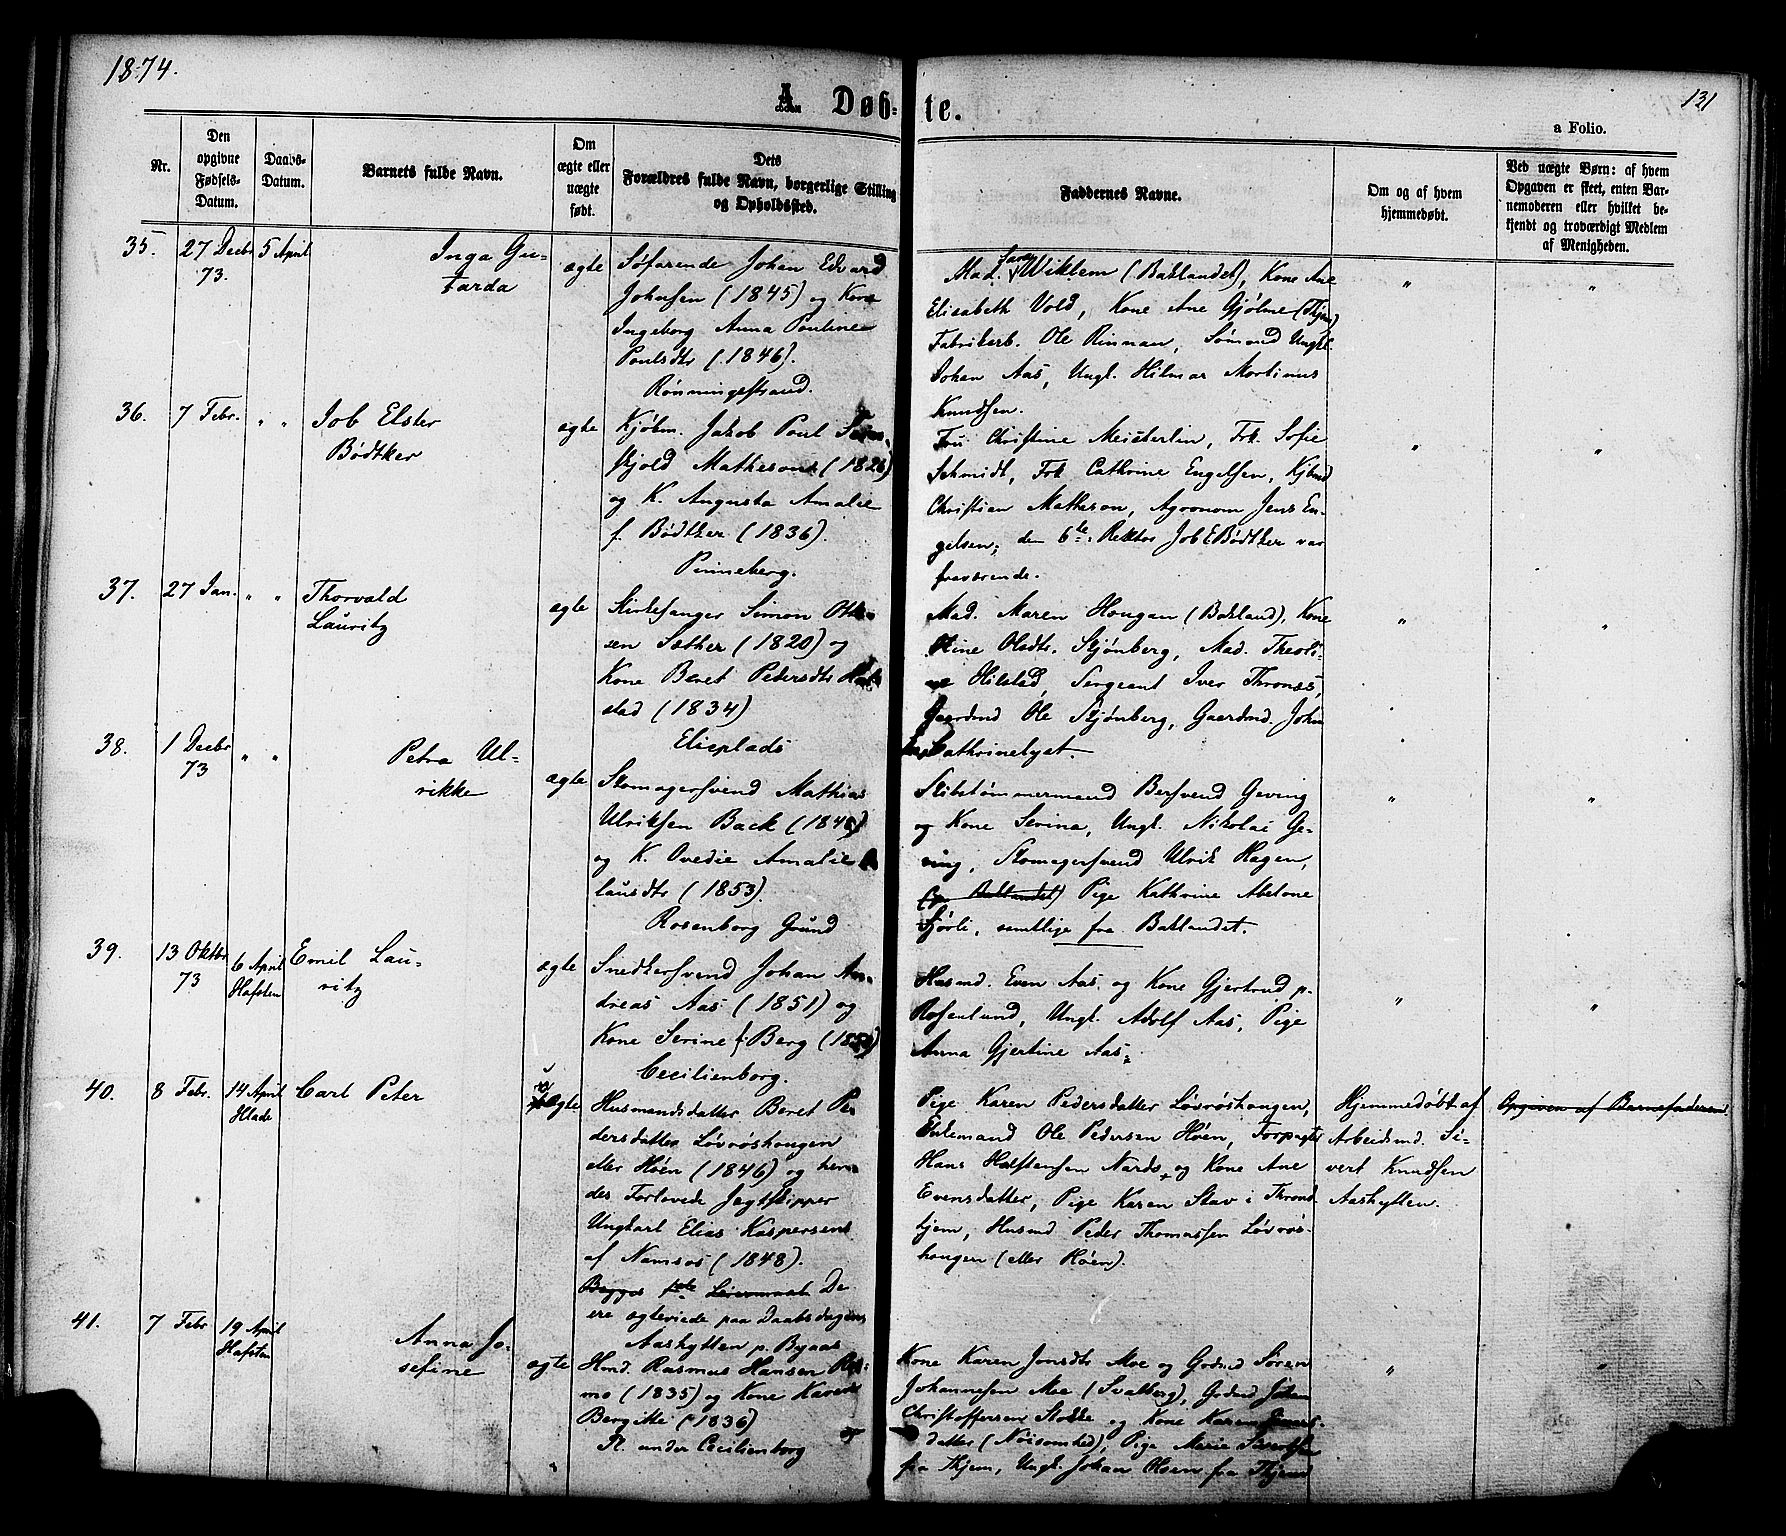 1874.
131
A. Døbte.
a Folio.
Nr.
Den opgivne Fødsels-Datum.
Daabs-Datum.
Barnets fulde Navn.
Om ægte eller uægte født.
Dets Forældres fulde Navn, borgerlige Stilling og Opholdssted.
Faddernes Navne.
Om og af hvem hjemmedøbt.
Ved uægte Børn: af hvem Opgaven er skeet, enten Barnemoderen eller hvilket bekjendt og troværdigt Medlem af Menigheden.
35. 27 Decbr 73. 5 April
Inga Gu-
tarda
ægte
Søfarende Johan Edvard
Johnsen (1845) og Kone
Ingeborg Anna Pouline
Poulsdtr (1846).
Rønningestrand.
Mad. Wiklem (Baklandet), Kone Ane
Elisabeth Vold, Kone Ane Gjølme (Thjem)
Fabrikarb. Ole Rinnan, Sømand Ungk.
Johan Aas, Ungk. Hilmar Martinus
Knudsen.
" "
36. 7 Febr. " "
Job Elster
Bødtker
ægte
Kjøbm. Jakob Poul
skjold Matheson (1826)
og K. Augusta Amalie
f. Bødtker (1836).
Pinneberg.
Fru Christine Meisterlin, Frk. Sofie
Schmidt, Frk Cathrine Engelsen, Kjbmd
Christian Matheson, Agronom Jens En-
gelsen; den 6te Rektor Job E Bødtker var
fraværende.
" "
37. 27 Jan. " "
Thorvald
Lauritz
ægte
Kirkesanger Simon Otte-
sen Sæther (1820) og
Kone Beret Pedersdtr
stad (1834)
Elieplads
Mad. Maren Hougan (Bakland), Kone
Oline Olsdtr. Skjønberg, Mad. Theoli-
ne Hilstad, Sergeant Iver Thronæs,
Gaardmd Ole Skjønberg, Gaardmd. John
Cathrinelyst.
" "
38. 1 Decbr 73 " "
Petra Ul-
rikke
ægte
Skomagersvend Mathias
Ulriksen Back (1848)
og K. Ovedie Amalie
lausdtr (1853).
Rosenborg Grund
Skibstømmermand Bersvend Geving
og Kone Serine, Ungk. Nikolai Ge-
ving, Skomagersvend Ulrik Hagen,
(p. Baklandet) Pige Kathrine Abelone
Sjøvli, samtlige fra Baklandet.
" "
39. 13 Oktbr 73 6 April Hafsten
Emil Lau-
ritz
ægte
Snedkersvend Johan An-
dreas Aas (1851) og
Kone Serine f. Berg
Cecilienborg.
Husmd. Even Aas, og Kone Gjertrud p.
Rosenlund, Ungk. Adolf Aas, Pige
Anna Gjertine Aas.
" "
40. 8 Febr. 14 April Hlade
Carl Peter
uægte
Husmandsdatter Beret Pe-
dersdatter Løvrøshougen
eller Høen (1846) og hen-
des Forlovede Jagtskipper
Ungkarl Elias Kaspersen
af Namsos (1848).
Begges De-
ere ægteviede paa Daabsdagen
Aashytten p. Byaas
Pige Karen Pedersdatter Løvrøshougen,
Enkemand Ole Pedersen Høen, Forpagter
Hans Halstensen Nardo, og Kone Ane
Evensdatter, Pige Karen Stav i Thrond-
hjem, Husmd Peder Thomassen Løvrøs-
hougen (eller Høen).
Hjemmedøbt af
Arbeidsmd. Si-
vert Knudsen
Aashytten.
Opgiven af Barnefaderen.
41. 7 Febr 19 April Hafsten
Anna Jo-
sefine
ægte
Hmd. Rasmus Hansen
mo (1835) og Kone Karen
Bergitte (1836)
Pl. under Cecilienborg
Kone Karen Jonsdtr Moe og Grdmd Søren
Johannesen Moe (Svalberg), Grdmd Johan
Christoffersen Stokke og Kone Karen
datter (Nøisomhed), Pige Marie
fra Thjem, Ungk. Johan Olsen fra Thjem
" "